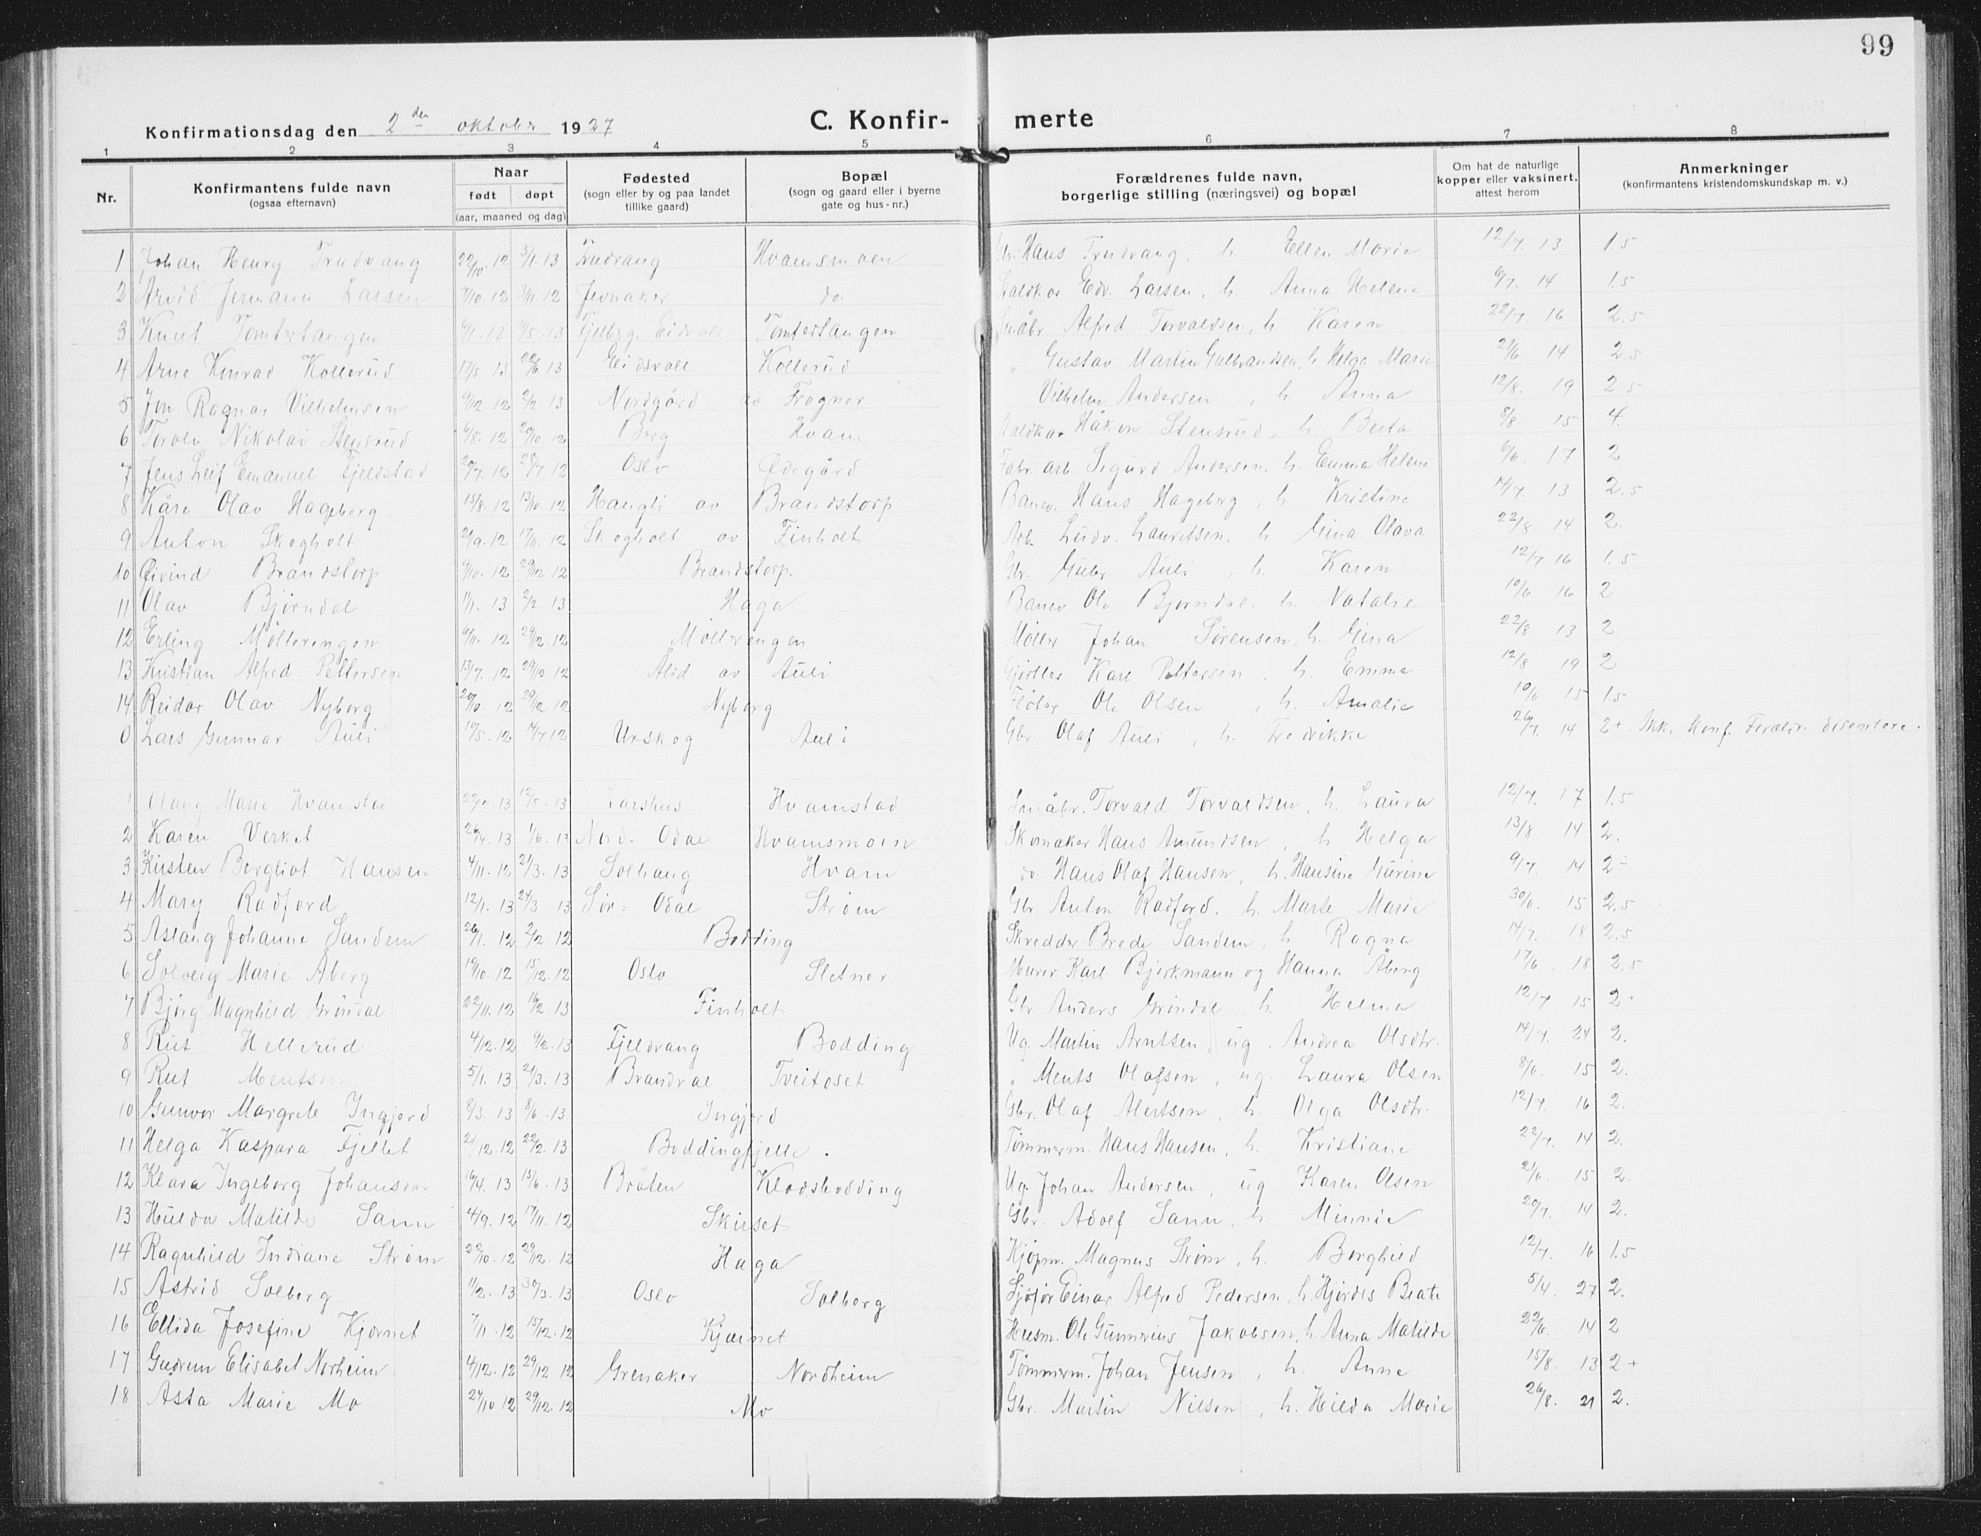 99
Konfirmationsdag den 2den oktober 1927 C. Konfir- merte
1 2 3 4 5 6 7 8
Nr. Konfirmantens fulde navn (ogsaa efternavn) Naar født døpt (aar, maaned og dag) Fødested (sogn eller by og paa landet tillike gaard) Bopæl (sogn og gaard eller i byerne gate og hus-nr.) Forældrenes fulde navn, borgerlige stilling (næringsvei) og bopæl Om hat de naturlige kopper eller vaksinert, attest herom Anmerkninger (konfirmantens kristendomskundskap m. v.)
1 Johan Henry Trudvang 22/10. 12 5/1. 13 Trudvang Hvamsmoen Hans Trudvang, h. Ellen Marie 12/7. 13 1.5
2 Arvid Jermann Larsen 3/11. 12 Jevnaker do. Edv. Larsen, h. Anna Helene 6/7. 14 1.5
3 Knut Tomtertangen Eidsvoll Tomtertangen Småbr. Alfred Torvaldsen, h. Karen 22/7. 16 2.5
4 Arne Konrad Kollerud 17/5 13 22/6 13 Eidsvoll Kollerud " Gustav Martin Gulbrandsen, h. Helga Marie 21/6 14 2.5
5 Jon Ragnar Vilhelmsen 9/12 12 2/2 13 Nordgård av Frogner Vilhelm Andersen, h. Anna 12/8. 19 2.5
6 Torolv Nikolai Stensrud 6/8. 12 20/10. 12 Berg Hvam Håkon Stensrud, h. Berta 8/8 15 4.
7 Jens Leif Emanuel Fjeldstad 20/7. 12 28/7. 12 Oslo Ødegård Fabr. arb. Sigurd Andersen. h. Emma Helene 6/6. 17 2
8 Kåre Olav Hageberg 15/8. 12 13/10. 12 Haugli av Brandstorp Banev. Hans Hageberg, h. Kristine 14/7. 13 2.5
9 Anton Skogholt 21/9. 12 17/11. 12 Skogholt av Finholt Arb. Ludv. Lauritsen, h. Gina Olava 22/8 14 2.
10 Øivind Brandstorp 9/10. 12 29/12 12 Brandstorp. Gbr. Gubr. Auli, h. Karen 12/7. 16 1.5
11 Olav Bjørndal 1/1. 13 2/2 13 Haga Banev Ole Bjørndal, h. Natalie 10/6 16 2
12 Erling Møllerengen 6/11. 12 29/12. 12 Møllerengen Møller Johan Sørensen, h. Gina 22/8. 13 2.
13 Kristian Alfred Pettersen 13/7. 12 29/12 12 Ålid av Auli Gjørtler Karl Pettersen, h. Emma 12/8. 19 2
14 Reidar Olav Nyborg 20/10. 12 29/12. 12 Nyborg Fløter Ole Olsen, h. Amalie 10/6 15 1.5
0 Lars Gunnar Auli 19/5. 12 14/7 12 Urskog Auli Gbr. Olaf Auli, h. Fredrikke 26/7. 14 2+. Ikke Konf. Foreldr. disentere.
1 Marie Hvamstad 22/2. 13 12/5. 13 Larshus Hvamstad Småbr. Torvald Torvaldsen, h. Laura 12/7. 17 1.5
2 Karen Verket 26/4. 13 1/6. 13 Nord-Odal Hvamsmoen Skomaker Hans Amundsen, h Helga 13/8. 14 2.
3 Kirsten Bergliot Hansen 4/11. 12 21/3. 13 Solhaug Hvam do. Hans Olaf Hansen, h. Hansine Gurine 9/7. 14 2÷
4 Mary Radford 12/1. 13 24/3 13 Sør-Odal Strøm Gbr. Anton Radford, h. Marte Marie 30/6. 15 2.5
5 Aslaug Johanne Sandem 26/1. 12 2/2 12 Bodding Skredder Brede Sandem, h. Ragna 14/7. 18 2.5
6 Solveig Marie Åberg 19/10. 12 15/12. 12 Oslo Sletner Murer Karl Bjørkmann og Hanna Åberg 17/6. 18 2.5
7 Bjørg Magnhild Grøndal 22/11. 12 16/2. 13 Finholt Gbr. Anders Grøndal, h. Helma 12/7 15 2÷
8 Rut Hellerud 4/12. 12 9/2. 13 Fjeldvang Bodding Ug. Martin Arntsen, ug. Andrea Olsdtr. 14/7. 24 2.
9 Rut Mentsen 5/1. 13 21/3. 13 Brandval Tveitoset " Ments Olafsen, ug. Laura Olsen 8/6. 15 2.
10 Gunvor Margrete Ingjerd 8/3. 13 8/6. 13 Ingjerd Gbr. Olaf Alertsen, h. Olga Olsdtr. 12/7. 16 2.
11 Helga Kaspara Fjellet 21/12. 12 22/2. 13 Boddingfjelle. Tømmerm. Hans Hansen, h. Kristiane 22/7. 14 2.
12 Klara Ingeborg Johansen 16/4. 13 15/6. 13 Bråten Klodsbodding Ug. Johan Andersen, ug Karen Olsen 21/6. 15 2.
13 Hulda Matilde Sann 4/9. 12 17/11. 12 Skirset Gbr. Adolf Sann, h. Minnie 20/7. 14 2.
14 Ragnhild Indiane Strøm 22/10. 12 29/12. 12 Haga Kjøpm. Magnus Strøm, h. Borghild 12/7. 16 1.5
15 Astrid Solberg 11/2. 13 30/3. 13 Oslo Solberg Sjåfør Einar Alfred Pedersen, h. Hjørdis Beate 5/4. 27 2.
16 Ellida Josefine Kjernet 7/11. 12 15/12. 12 Kjærnet Husm. Ole Gunnerius Jakobsen, h. Anna Matilde 22/6. 14 2
17 Gudrun Elisabet Norheim 4/12. 12 29/12. 12 Grenaker Nordheim Tømmerm. Johan Jensen, h. Anne 15/8. 13 2+
18 Asta Marie Mo 27/10 12 29/12. 12 Mo Gbr. Martin Nilsen, h. Hilda Marie 26/8. 21 2.